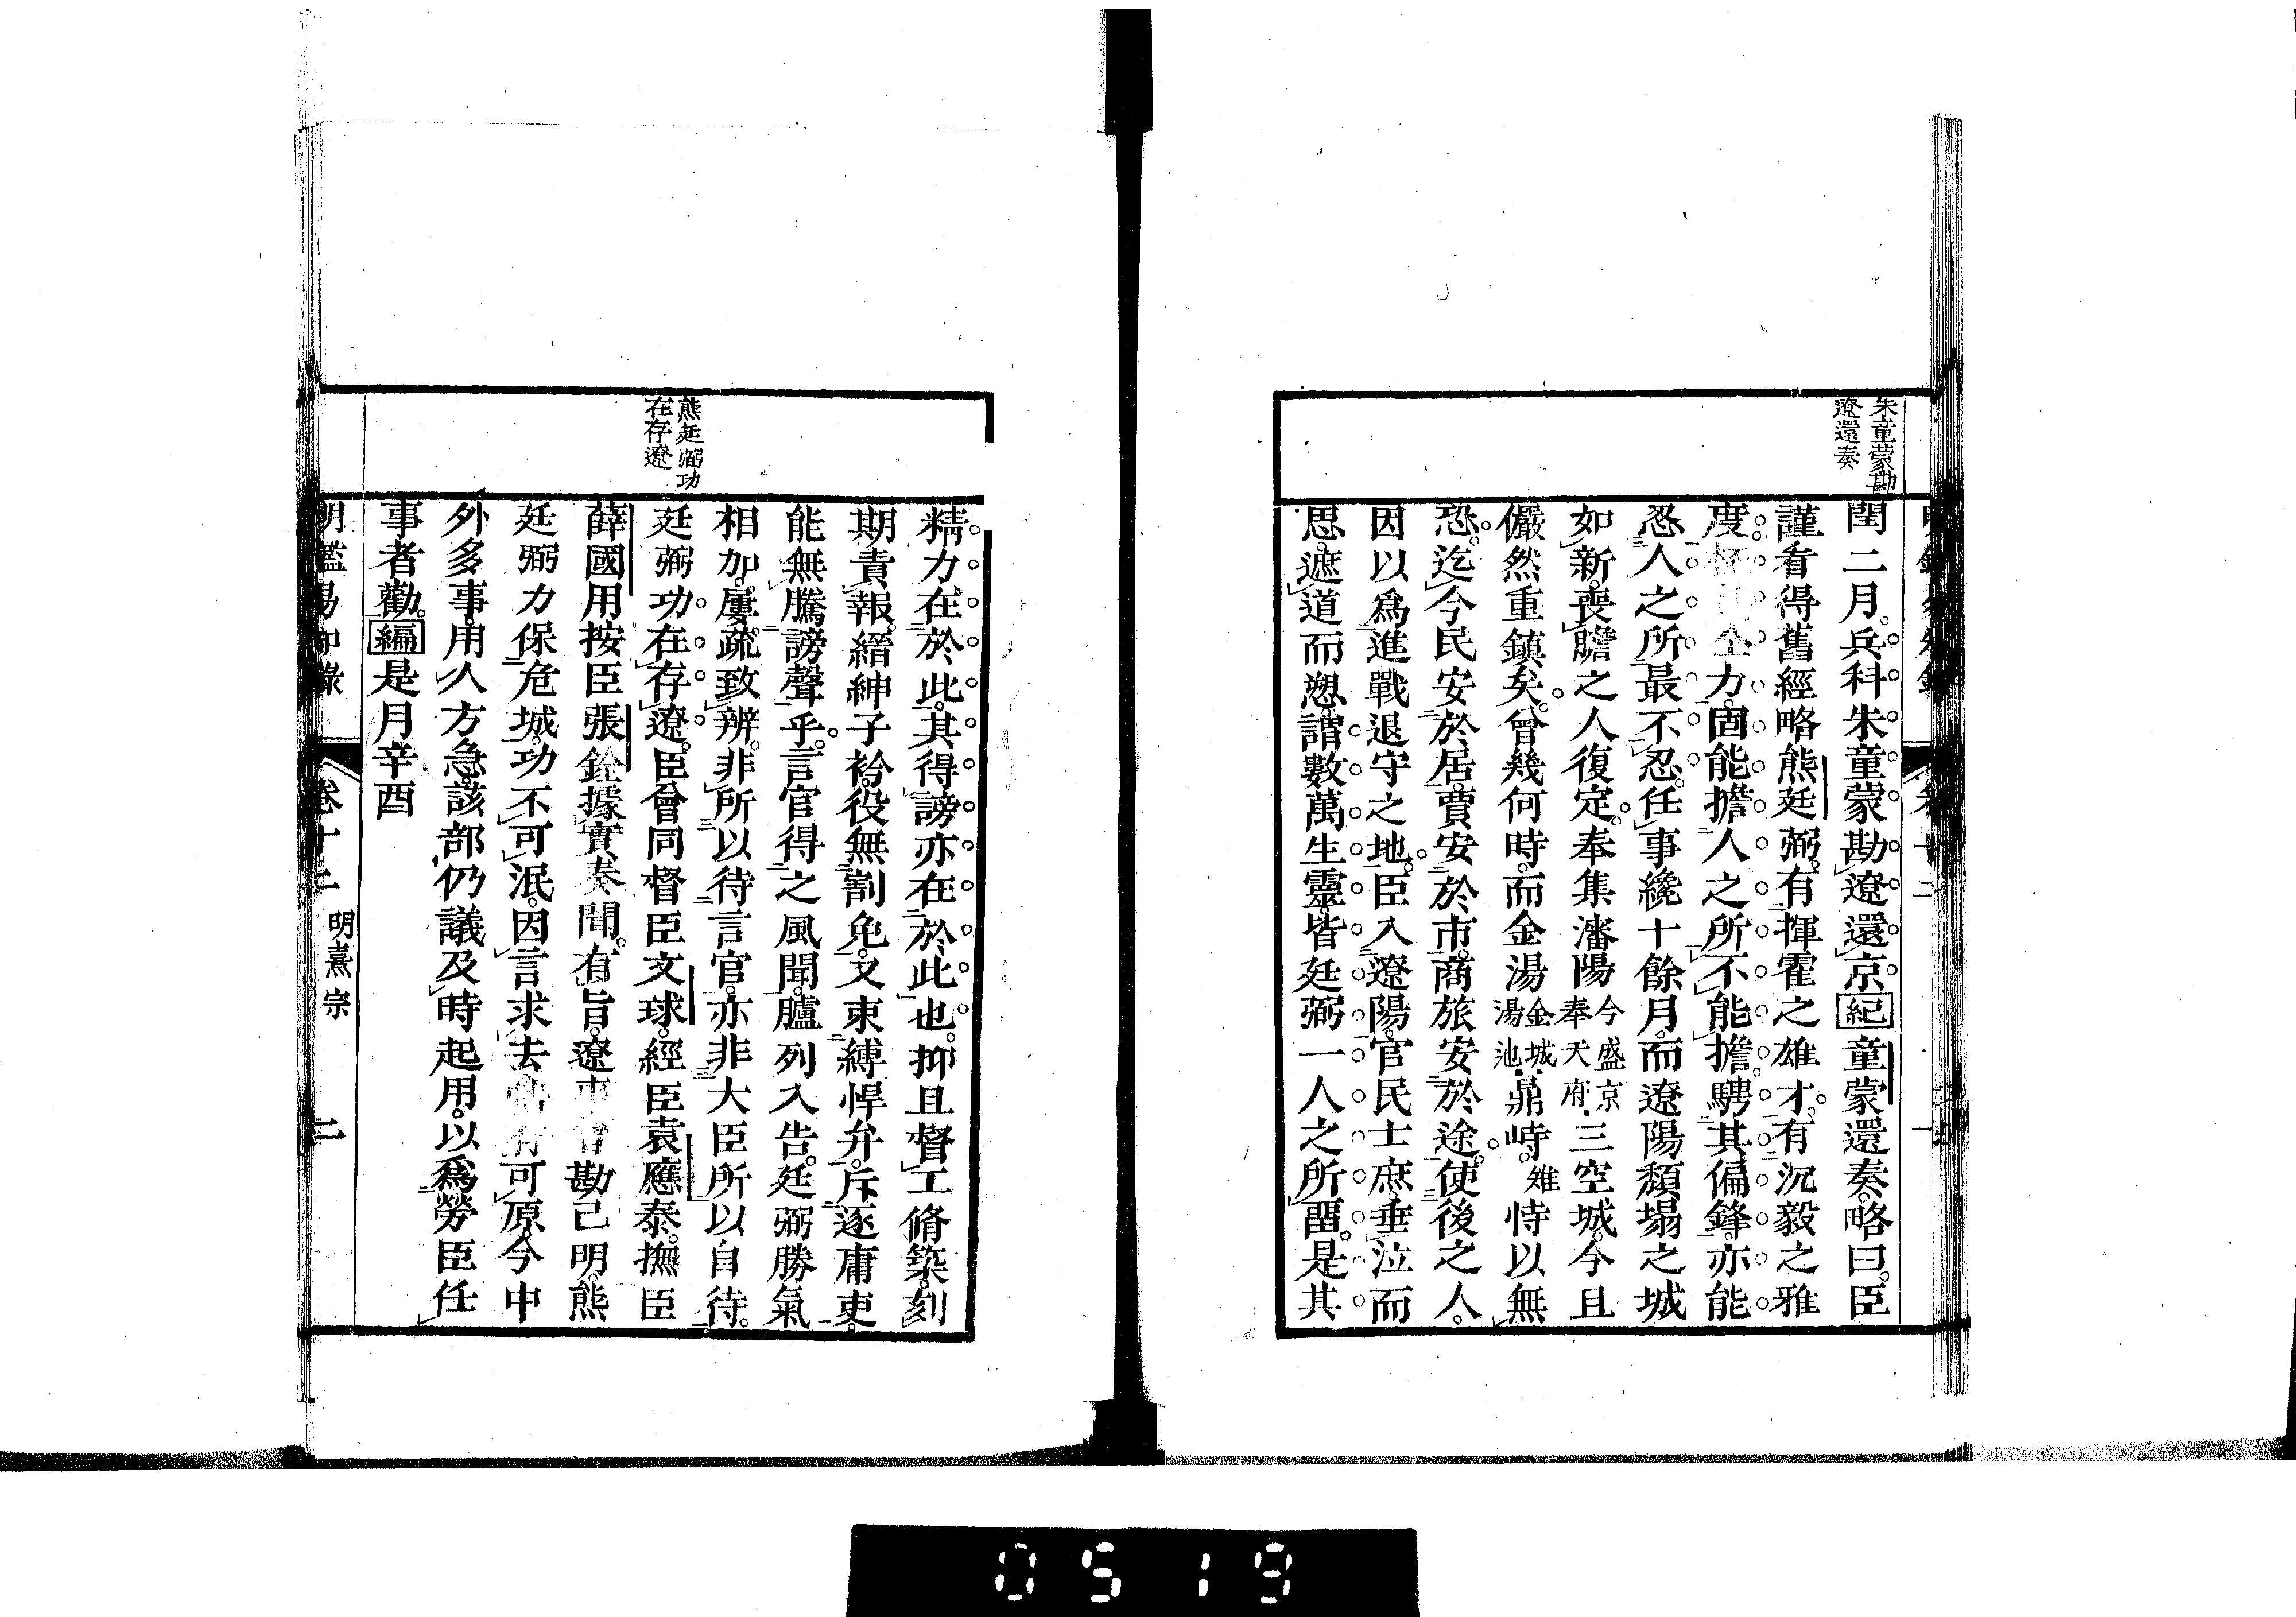 朱童蒙勘
遼還奏
閏二月。兵科朱童蒙勘遼還京。紀童蒙還奏。略曰。臣
謹看得舊經略熊廷弼。有揮霍之雄才。有沉毅之雅
度。全力。固能擔人之所不能擔。騁其偏鋒。亦能
忍人之所最不忍。任事纔十餘月。而遼陽頹塌之城
如新。喪膽之人復定。奉集瀋陽今盛京奉天府三空城。今且
儼然重鎮矣。曾幾何時。而金湯金城湯池鼎峙。雉恃以無
恐。迄今民安於居。賈安於市。商旅安於途。使後之人。
因以爲進戰退守之地。臣入遼陽。官民士庶。垂泣而
思。遮道而愬。謂數萬生靈。皆廷弼一人之所畱。是其
精力在於此。其得謗亦在於此也。抑且督工脩築。刻
期責報。縉紳子衿。役無割免。又束縛悍弁。斥逐庸吏。
能無騰謗聲乎。言官得之風聞。臚列入告。廷弼勝氣
相加。屢疏致辨。非所以待言官。亦非大臣所以自待。
廷弼功在存遼。臣曾同督臣文球。經臣袁應泰。撫臣
薛國用按臣張銓據實奏聞。有旨。遼東勘已明。熊
廷弼力保危城。功不可泯。因言求去可原。今中
外多事。用人方急。該部仍議及時起用。以爲勞臣任
事者勸。編是月辛酉
熊廷弼功
在存遼
明鑑易知錄 卷十二 明熹宗 二
0519